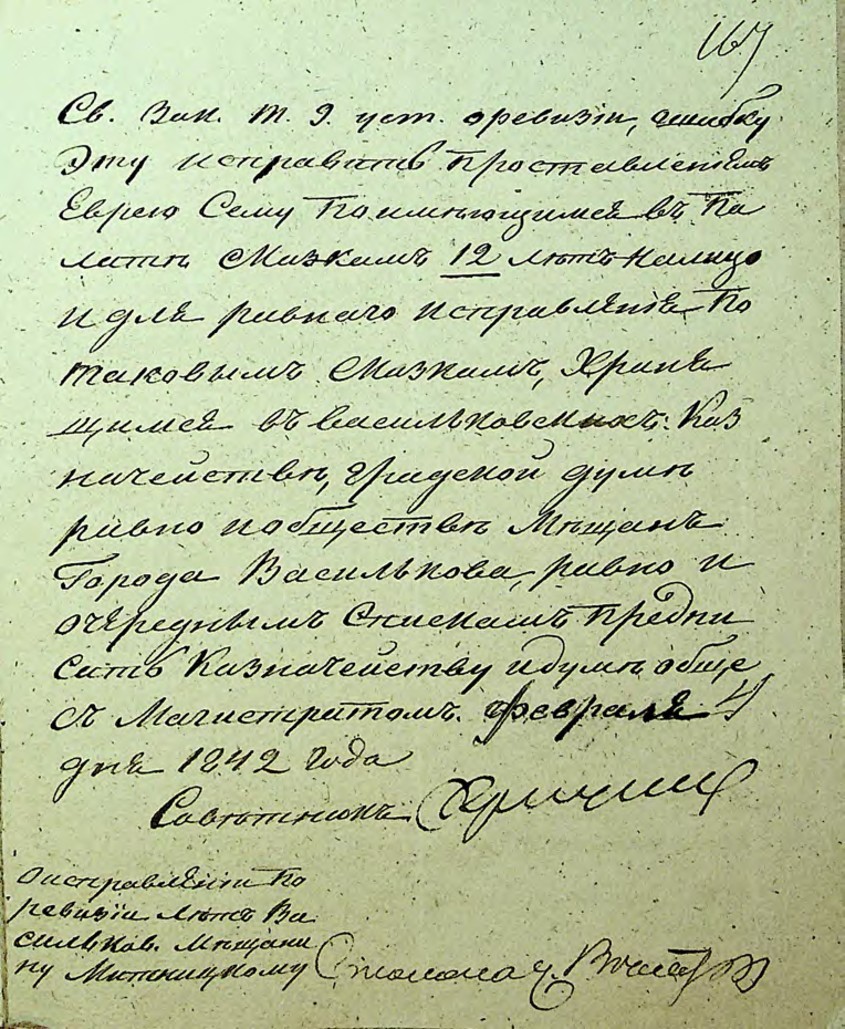 167
Св. Зак. т. 9. уст. о ревизіи, ошибку
Эту исправить проставленіемъ
Еврею Сему по имѣющимся въ Па
латѣ сказкамъ 12 лѣтъ налицо
и для равнаго исправленія по
таковымъ сказкамъ, храня
щимся въ Васильковскихъ: Каз
начействѣ, градской думѣ
равно и обществѣ Мѣщанъ
Города Василькова, равно и
очереднымъ спискамъ предпи
сать Казначейству и думѣ обще
съ Магистратомъ. Февраля 4
дня 1842 года
Совѣтникъ
о исправленіи по
ревизіи лѣтъ Ва
сильков. Мѣщани
ну
Столонач.